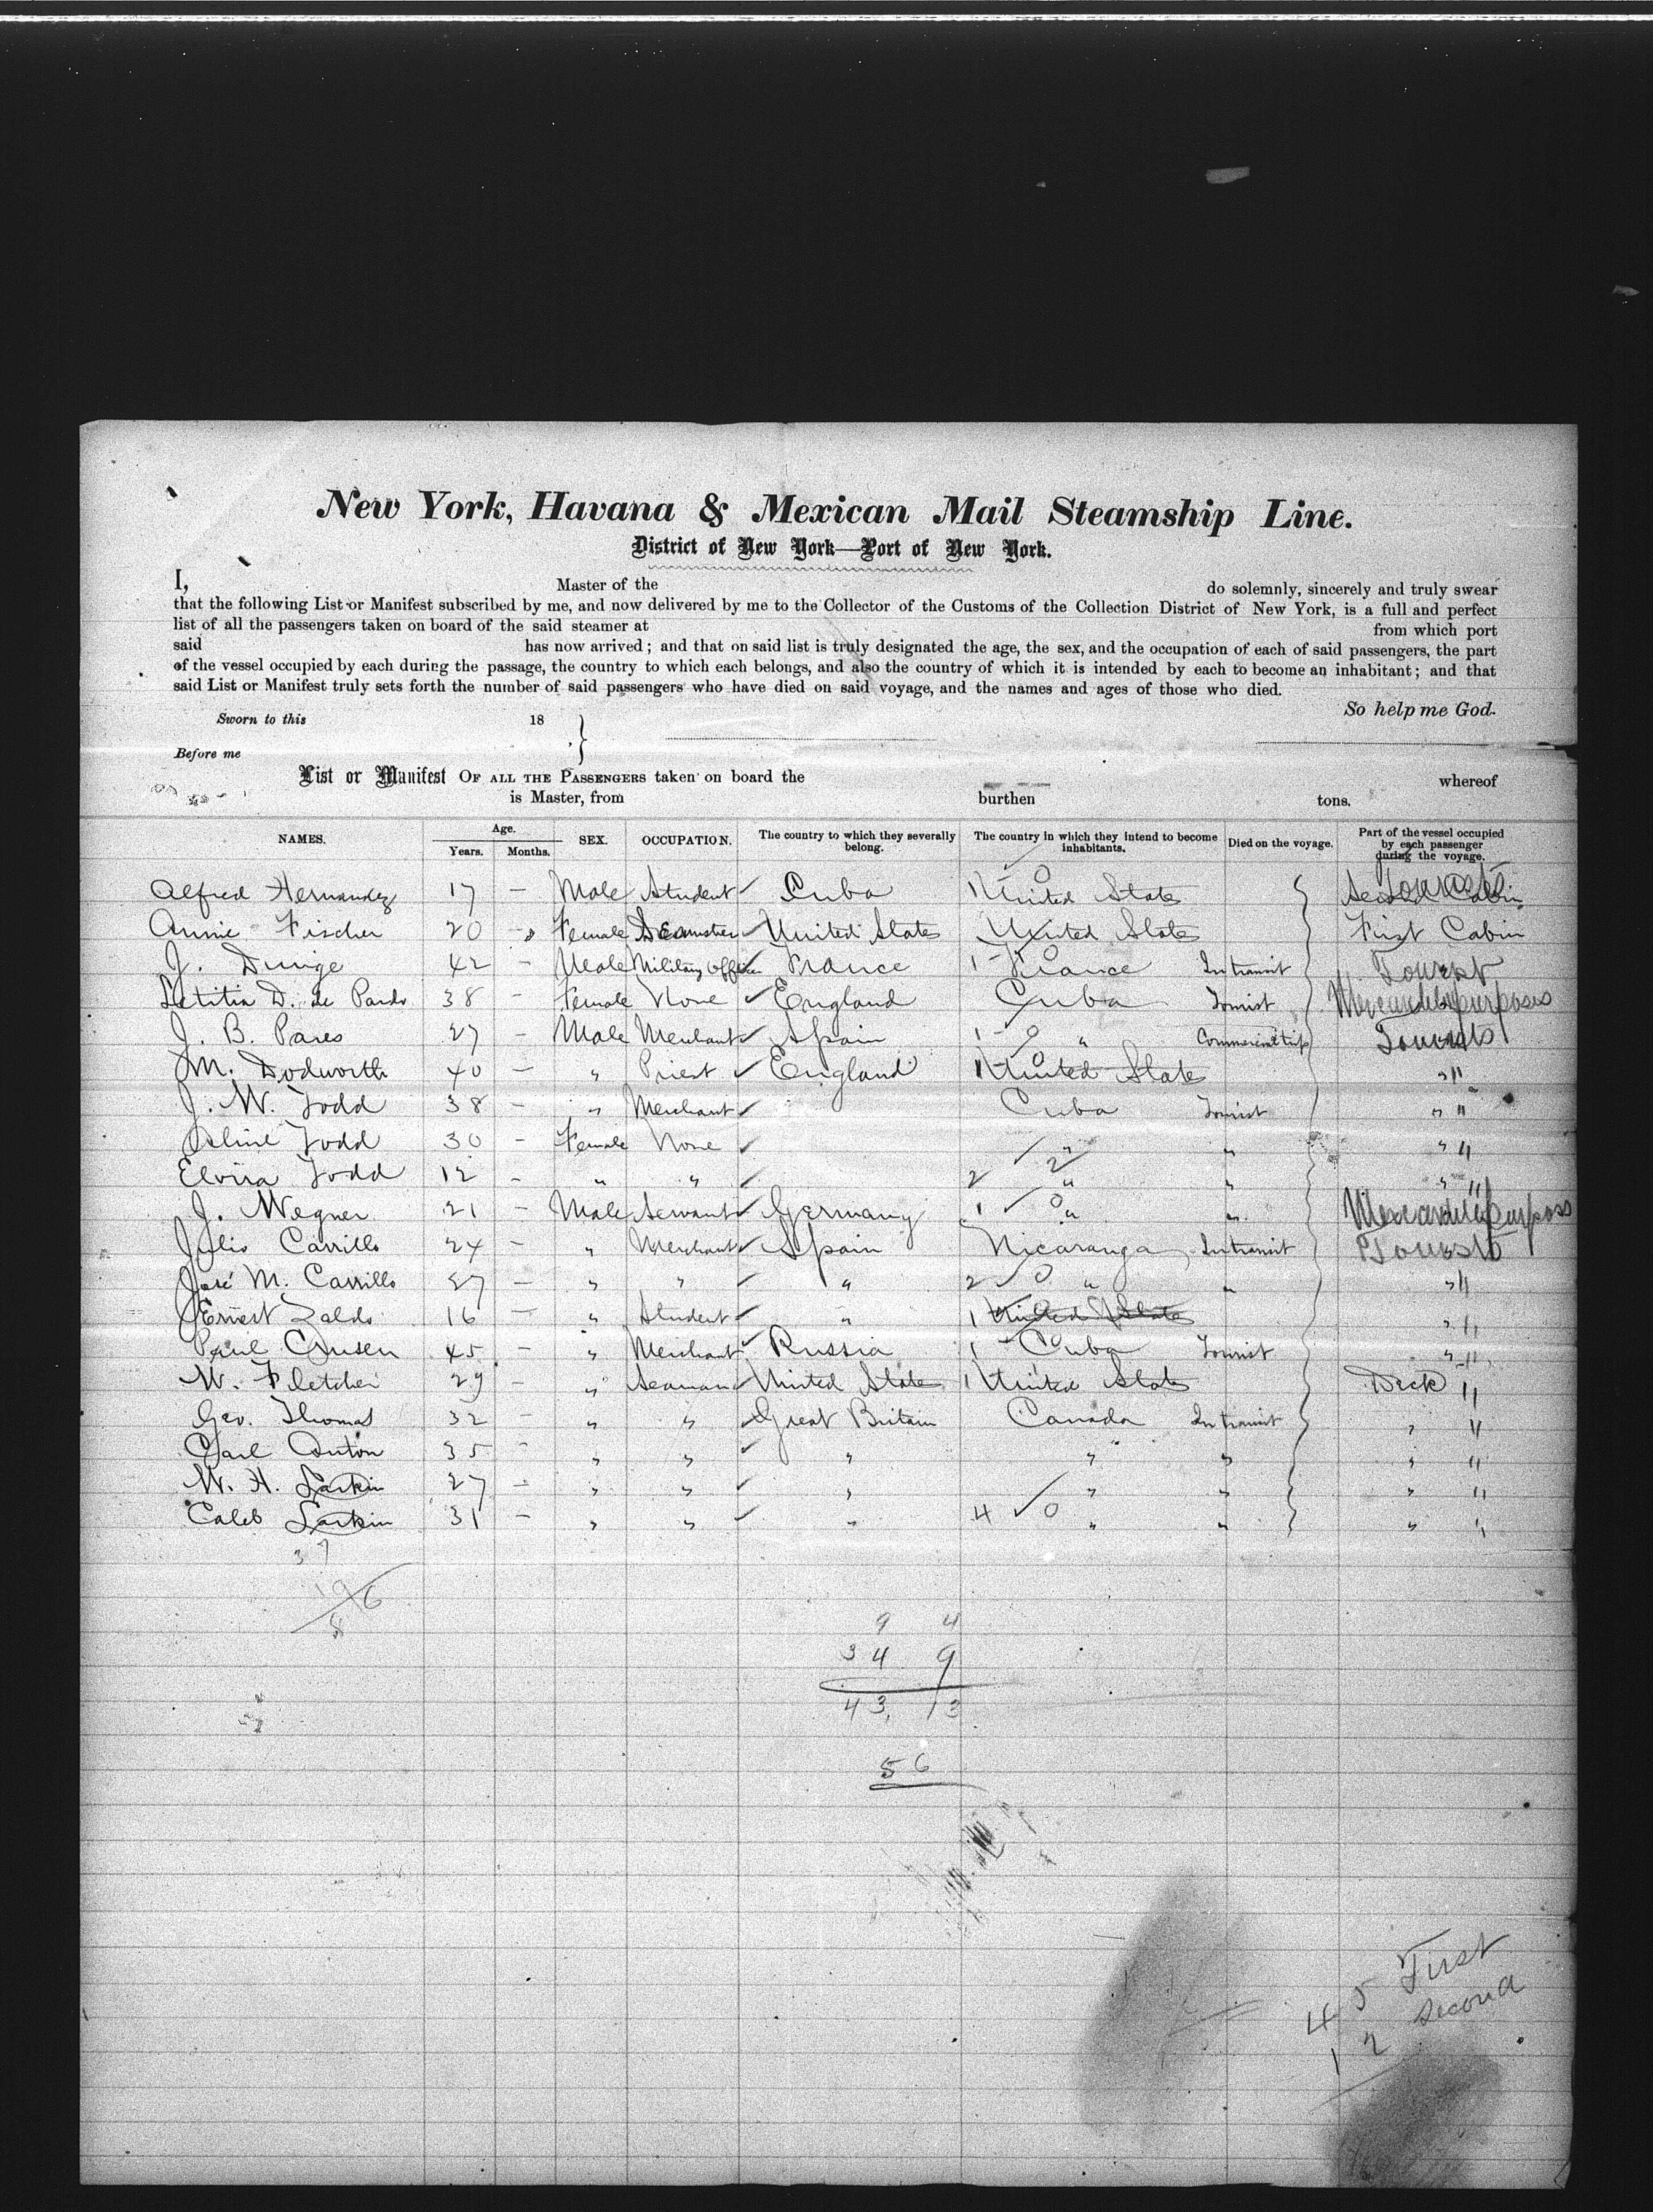 New York, Havana & Mexican Mail Steamship Line.
District of New York—Port of New York.
I, Master of the do solemnly, sincerely and truly swear
that the following List or Manifest subscribed by me, and now delivered by me to the Collector of the Customs of the Collection District of New York, is a full and perfect
list of all the passengers taken on board of the said steamer at from which port
said has now arrived; and that on said list is truly designated the age, the sex, and the occupation of each of said passengers, the part
of the vessel occupied by each during the passage, the country to which each belongs, and also the country of which it is intended by each to become an inhabitant; and that
said List or Manifest truly sets forth the number of said passengers who have died on said voyage, and the names and ages of those who died.
So help me God.
Sworn to this 18
Before me
List or Manifest OF ALL THE PASSENGERS taken on board the whereof
is Master, from burthen tons.
NAMES. Age. Years. Months. SEX. OCCUPATION. The country to which they severally belong. The country in which they intend to become inhabitants. Died on the voyage. Part of the vessel occupied by each passenger during the voyage.
Alfred Hernandez 17 - Male Student Cuba 1 United States Second Cabin
Annie Fischer 20 Female Seamster United States United States First Cabin
J. 42 - Male Military Officer France 1 France In transit Tourist
Letitia D. de Pardo 38 - Female None England Cuba Tourist Mercantile purposes
J. B. Pares 27 - Male Merchant Spain 1 0 " Commercial trip Tourists
M. Dodworth 40 - " Priest England 1 United States " "
J. W. Todd 38 - " Merchant Cuba Tourist " "
Aline Todd 30 - Female None " " " "
Elvira Todd 12 - " " 2 2 " " " "
J. Wegner 21 - Male Servant Germany 1 0 " " Mercantile purposes
Julio Carrillo 24 - " Merchant Spain Nicaranga In transit Tourist
José M. Carrillo 27 - " " " 2 0 " " " "
Ernest Zaldo 16 - " Student " 1 United States " "
Paul 45 - " Merchant Russia 1 Cuba Tourist " "
W. Fletcher 29 " Seaman United States 1 United States Deck "
Geo. Thomas 32 - " " Great Britain Canada In transit " "
Carl Anton 35 - " " " " " " "
W. H. Larkin 27 - " " " " " " "
Caleb Larkin 31 - " " " 4 0 " " " "
37
9 4
34 9
43, 13
56
45 First
12 Second